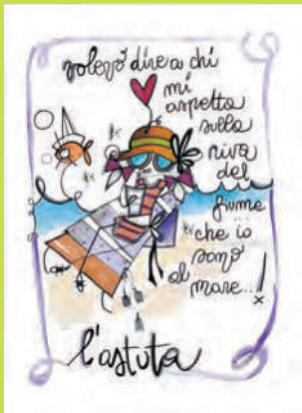 volevo dire a chi
mi
aspetta
sulla
riva
del
fiume
che io
sono
al
mare...!
l'astuta